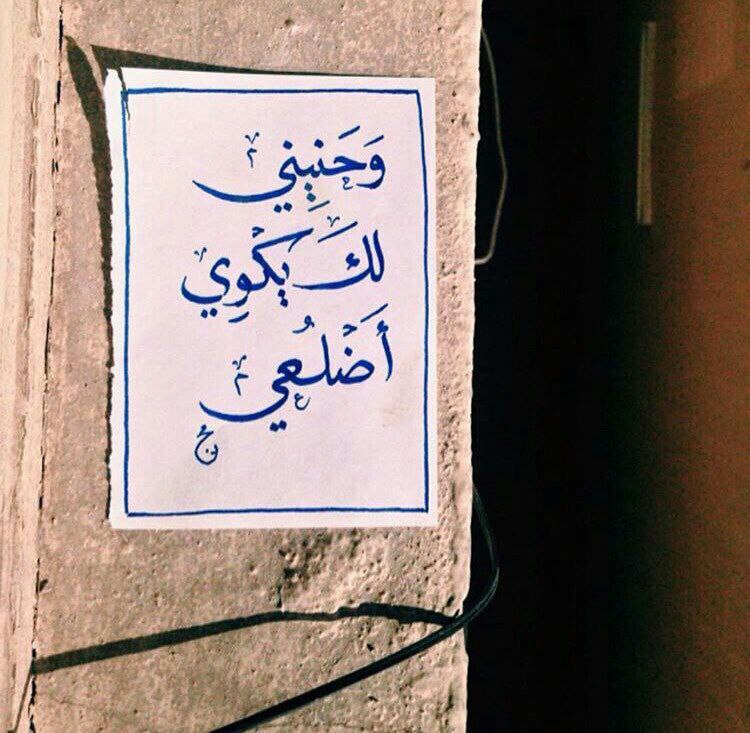 وَحَنِيني
لكَ يَكْوِي
أَضْلُعي